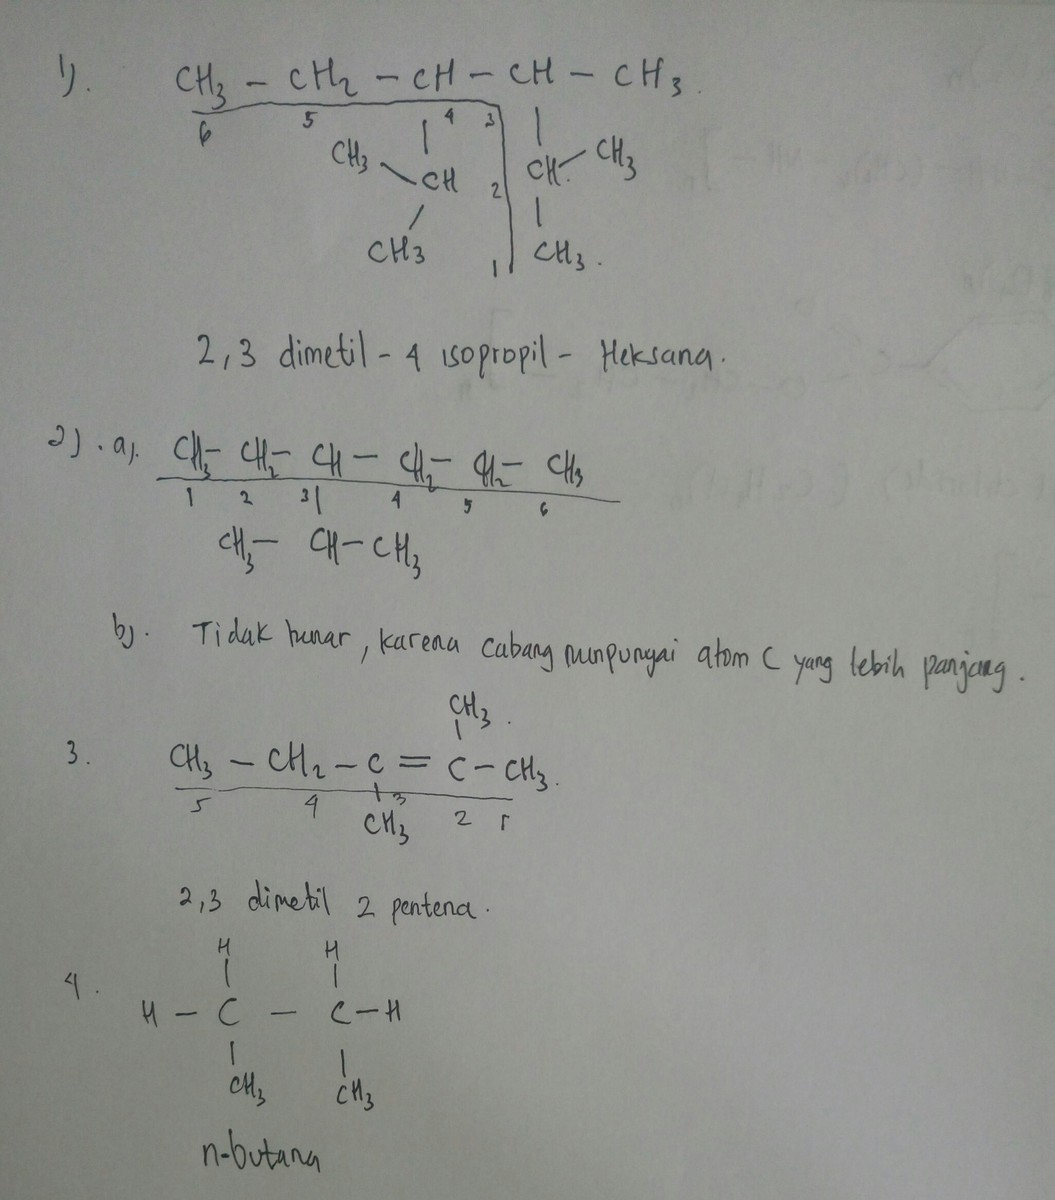 1).
CH3 – CH2 – CH – CH – CH3.
6 5 4 3
CH3 CH 2 CH. CH3
CH3 1 CH3.
2,3 dimetil - 4 isopropil - Heksana.
2). a). CH3 – CH2 – CH – CH2 – CH2 – CH3
1 2 3 4 5 6
CH3 – CH – CH3
b). Tidak benar, karena cabang mempunyai atom C yang lebih panjang.
CH3.
3. CH3 – CH2 – C = C – CH3.
5 4 3 2 1
CH3
2,3 dimetil 2 pentena.
H H
4. H – C – C – H
CH3 CH3
n-butana